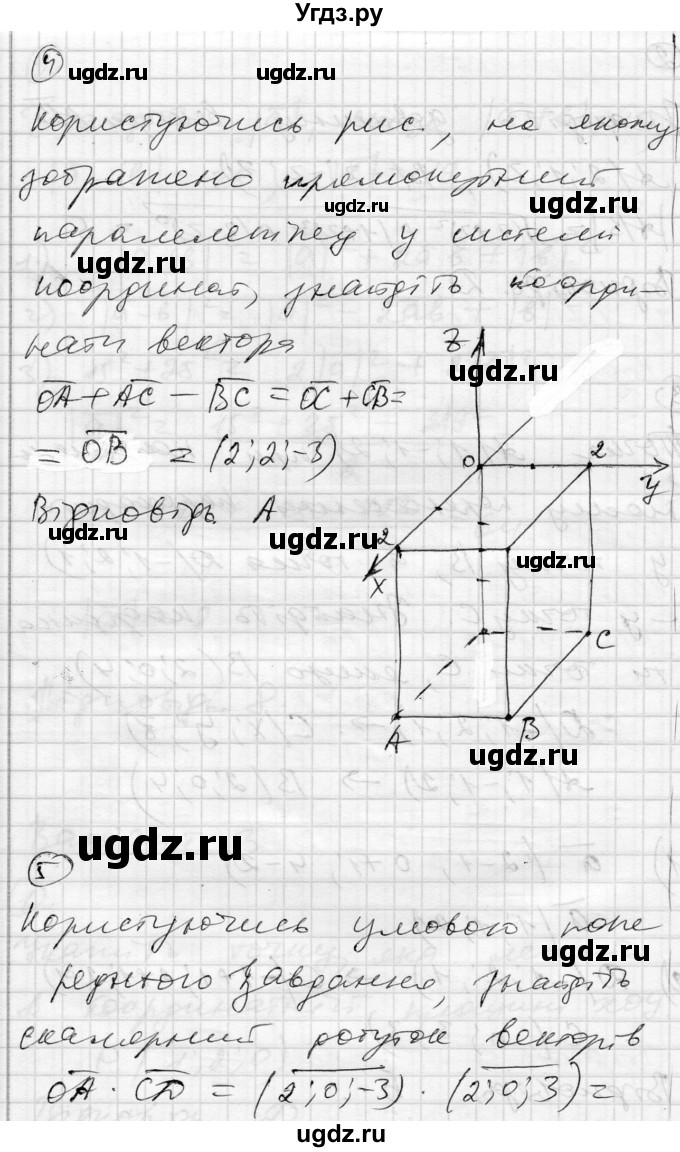 Угдз.ру
④
ugdz.ru ugdz.ru
Користуючись рис., на якому
зображено прямокутний
ugdz.ru ugdz.ru
паралелепіпед у системі
ugdz.ru
координат, знайдіть коорди-
нати вектора
z
ugdz.ru
OA + AC - BC = OC + CB =
= OB = (2; 2; -3)
0 2 y
Відповідь A
ugdz.ru ugdz.ru
2
x
ugdz.ru
C
A B
ugdz.ru
ugdz.ru
⑤
Користуючись умовою попе
ugdz.ru
реднього завдання, знайдіть
скалярний добуток векторів
ugdz.ru
OA · CD = (2; 0; -3) · (2; 0; 3) =
ugdz.ru